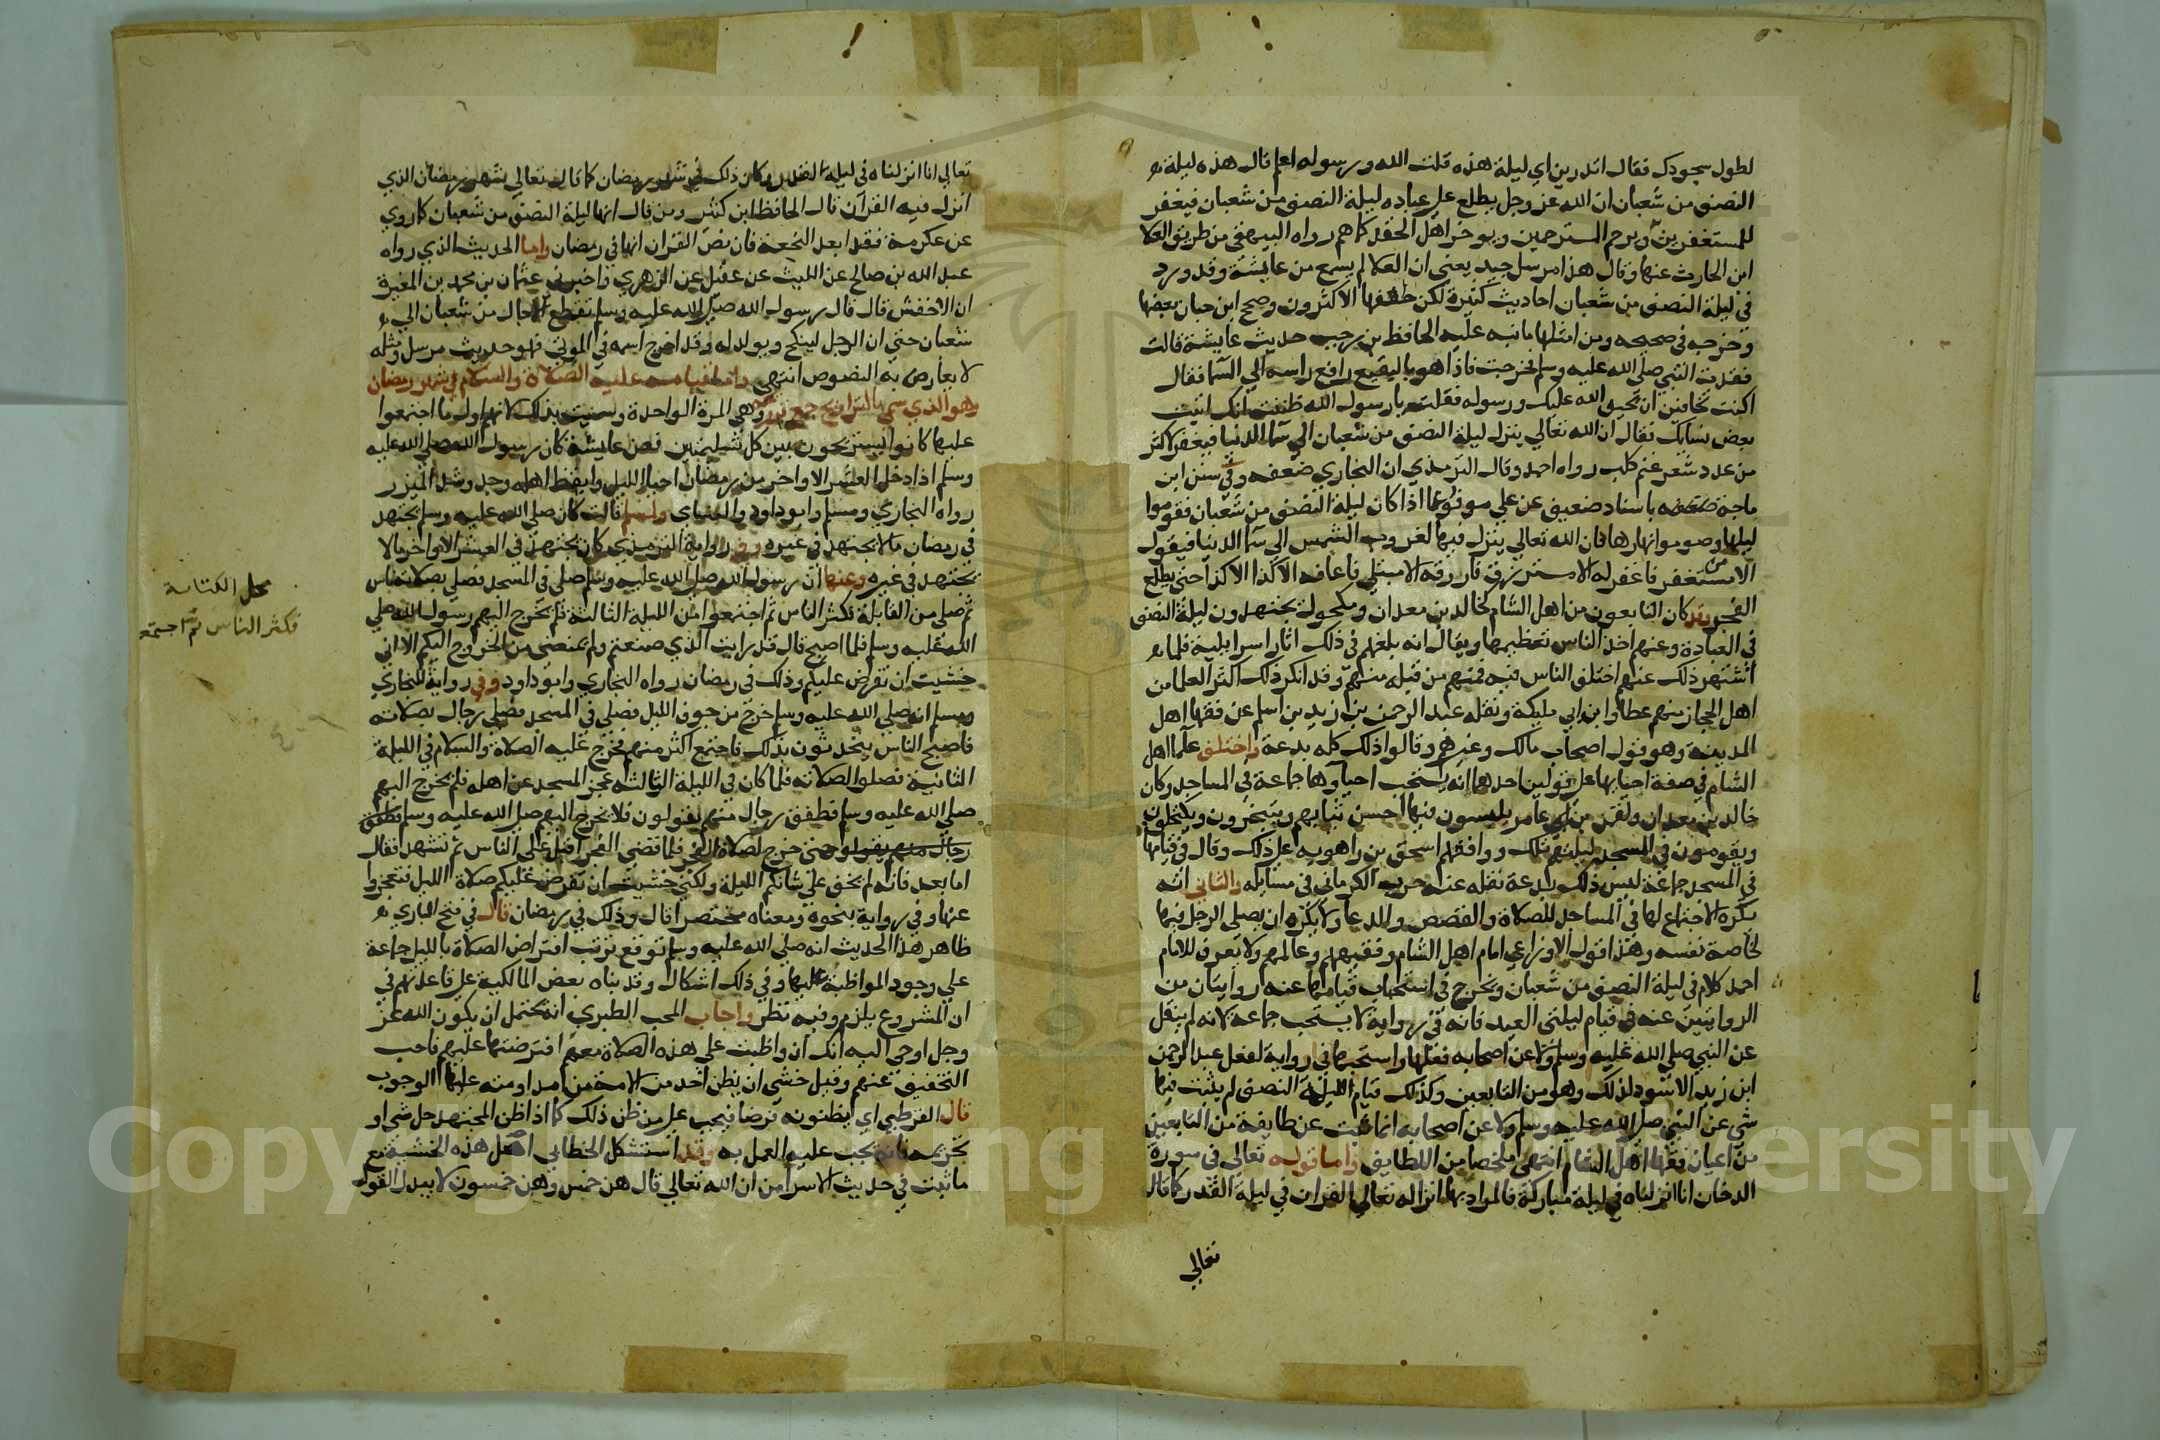 لطول سجودك فقال اتدرين اي ليلة هذه قلت الله ورسوله اعلم قال هذه ليلة
النصف من شعبان ان الله عز وجل يطلع على عباده ليلة النصف من شعبان فيغفر
للمستغفرين ويرحم المسترحمين ويوخر اهل الحقد كما هم رواه البيهقي من طريق العلا
ابن الحارث عنها وقال هذا مرسل جيد يعني ان العلا لم يسمع من عايشة وقد ورد
في ليلة النصف من شعبان احاديث كثيرة لكن ضعفها الاكثرون وصحح ابن حبان بعضها
وخرجه في صحيحه ومن امثلها ما نبه عليه الحافظ بن رجب حديث عايشة قالت
فقدت النبي صلى الله عليه وسلم فخرجت فاذا هو بالبقيع رافع راسه الي السما فقال
اكنت تخافين ان يحيف الله عليك ورسوله فقلت يا رسول الله ظننت انك اتيت
بعض نسايك فقال ان الله تعالي ينزل ليلة النصف من شعبان الي سما الدنيا فيغفر لاكثر
من عدد شعر غنم كلب رواه احمد وقال الترمذي ان البخاري ضعفه وفي سنن ابن
ماجة باسناد ضعيف عن علي مرفوعا اذا كان ليلة النصف من شعبان فقوموا
ليلها وصوموا نهارها فان الله تعالي ينزل فيها لغروب الشمس الي سما الدنيا فيقول
الا من مستغفر فاغفر له الا مسترزق فارزقه الا مبتلي فاعافه الا كذا الا كذا حتي يطلع
الفجر وقد كان التابعون من اهل الشام كخالد بن معدان ومكحول يجتهدون ليلة النصف
في العبادة وعنهم اخذ الناس تعظيمها ويقال انه بلغهم في ذلك اثار اسرايلية فلما
اشتهر ذلك عنهم اختلف الناس فيه فمنهم من قبله منهم وقد انكر ذلك اكثر العلما من
اهل الحجاز منهم عطا وابن ابي مليكة ونقله عبد الرحمن بن زيد بن اسلم عن فقها اهل
المدينة وهو قول اصحاب مالك وغيرهم وقالوا ذلك كله بدعة واختلف علما اهل
الشام في صفة احيايها على قولين احدهما انه يستحب احياوها جماعة في المساجد وكان
خالد بن معدان ولقمن بن عامر يلبسون فيها احسن ثيابهم ويتبخرون ويكتحلون
ويقومون في المسجد ليلتهم تلك ووافقهم اسحق بن راهويه على ذلك وقال في قيامها
في المسجد جماعة ليس ذلك ببدعة نقله عنه حرب الكرماني في مسايله والثاني انه
يكره الاجتماع لها في المساجد للصلاة والقصص والدعا ولا يكره ان يصلي الرجل فيها
لخاصة نفسه وهذا قول الاوزاعي امام اهل الشام وفقيههم وعالمهم ولا تعرف للامام
احمد كلام في ليلة النصف من شعبان ويخرج في استحباب قيامها عنه روايتان من
الروايتين عنه في قيام ليلتي العيد فانه في رواية لا يستحب جماعة لانه لم ينقل
عن النبي صلي الله عليه وسلم ولا عن اصحابه فعلها واستحبها في رواية لفعل عبد الرحمن
ابن زيد الاسود لذلك وهو من التابعين وكذلك قيام ليلة النصف لم يثبت فيها
شي عن النبي صلى الله عليه وسلم ولا عن اصحابه انما ثبت عن طايفة من التابعين
من اعيان فقها اهل الشام انتهي ملخصا من اللطايف واما قوله تعالي في سورة
الدخان انا انزلناه في ليلة مباركة فالمراد بها انزاله تعالي القران في ليلة القدر كما قال
تعالي
تعالي انا انزلناه في ليلة القدر وكان ذلك في شهر رمضان كما قال تعالي شهر رمضان الذي
انزل فيه القرآن قال الحافظ ابن كثير ومن قال انها ليلة النصف من شعبان كما روي
عن عكرمة فقد ابعد النجعة فان نص القران انها في رمضان واما الحديث الذي رواه
عبد الله بن صالح عن الليث عن عقيل عن الزهري واخبرني عثمان بن محمد بن المغيرة
ان الاخفش قال قال رسول الله صلى الله عليه وسلم تقطع الاجال من شعبان الي
شعبان حتي ان الرجل لينكح ويولد له وقد اخرج اسمه في الموتي فهو حديث مرسل ومثله
لا يعارض به النصوص انتهي واما قيامه عليه الصلاة والسلام في شهر رمضان
وهو الذي سمي بالتراويح جمع ترويحة وهي المرة الواحدة وسميت بذلك لانهم اول ما اجتمعوا
عليها كانوا يستريحون بين كل تسليمتين فعن عايشة كان رسول الله صلى الله عليه
وسلم اذا دخل العشر الاواخر من رمضان احيا الليل وايقظ اهله وجد وشد الميزر
رواه البخاري ومسلم وابو داود والنساي ولمسلم قالت كان صلى الله عليه وسلم يجتهد
في رمضان ما لا يجتهد في غيره وفي رواية الترمذي كان يجتهد في العشر الاواخر ما لا
يجتهد في غيره وعنها ان رسول الله صلى الله عليه وسلم صلى في المسجد فصلي بصلاته ناس
ثم صلي من القابلة فكثر الناس ثم اجتمعوا من الليلة الثالثة فلم يخرج اليهم رسول الله صلي
الله عليه وسلم فلما اصبح قال قد رايت الذي صنعتم ولم يمنعني من الخروج اليكم الا اني
خشيت ان تفرض عليكم وذلك في رمضان رواه البخاري وابو داود وفي رواية للبخاري
ومسلم انه صلي الله عليه وسلم خرج من جوف الليل فصلي في المسجد فصلي رجال بصلاته
فاصبح الناس يتحدثون بذلك فاجتمع اكثر منهم فخرج عليه الصلاة والسلام في الليلة
الثانية فصلوا بصلاته فلما كان في الليلة الثالثة عجز المسجد عن اهله فلم يخرج اليهم
صلي الله عليه وسلم فطفق رجال منهم يقولون فلا يخرج اليهم صلى الله عليه وسلم فطفق
رجال منهم يقولوا حتي خرج لصلاة الفجر فلما قضي الفجر اقبل علي الناس ثم تشهد فقال
اما بعد فانه لم يخف علي شانكم الليلة ولكني خشيت ان تفرض عليكم صلاة الليل فتعجزوا
عنها وفي رواية بنحوه ومعناه مختصرا قال وذلك في رمضان قال في فتح الباري
ظاهر هذا الحديث انه صلي الله عليه وسلم توقع ترتب افتراض الصلاة بالليل جماعة
علي وجود المواظبة عليها وفي ذلك اشكال وقد بناه بعض المالكية على قاعدتهم في
ان المشروع يلزم وفيه نظر واجاب المحب الطبري انه يحتمل ان يكون الله عز
وجل اوحي اليه انك ان واظبت علي هذه الصلاة معهم افترضتها عليهم فاحب
التخفيف عنهم وقيل خشي ان يظن احد من الامة من مداومته عليها الوجوب
قال القرطبي اي يظنونه فرضا فيجب على من ظن ذلك كما اذا ظن المجتهد حل شي او
تحريمه فانه يجب عليه العمل به وقد استشكل الخطابي اصل هذه الخشية مع
ما ثبت في حديث الاسرا من ان الله تعالي قال هن خمس وهن خمسون لا يبدل القول
محل الكتابة
فكثر الناس ثم اجتمع
Copy Saud University